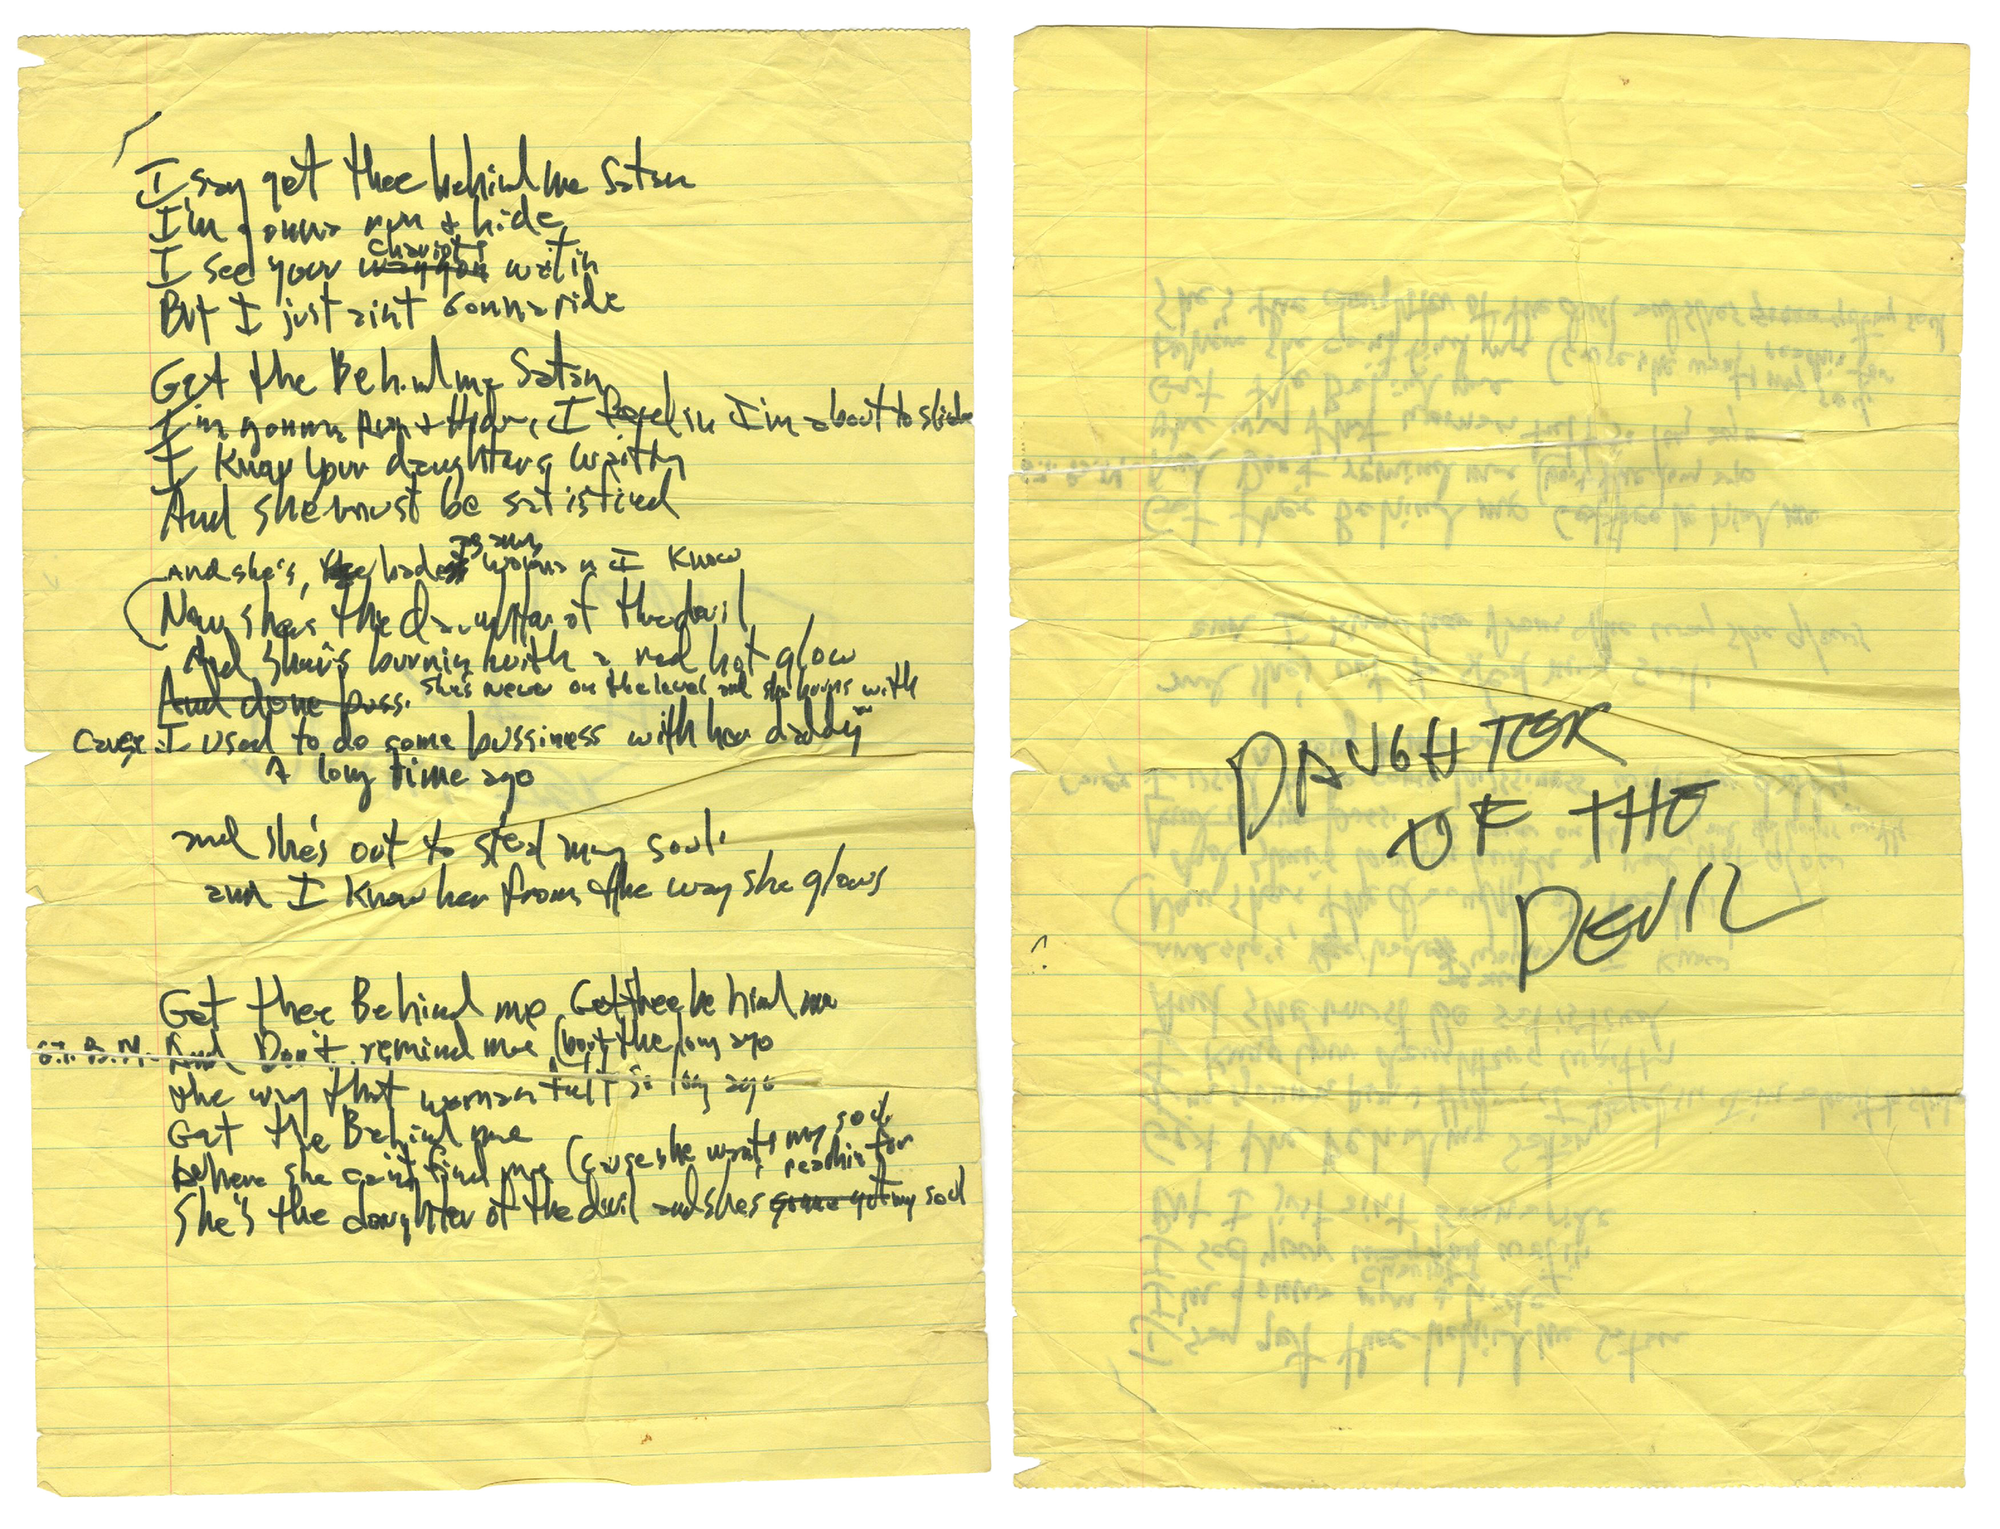 I say get thee behind me Satan
I'm gonna run + hide
chariots
I see your waggon waitin
But I just aint Gonna ride
Get the Behind me Satan
I'm gonna Run + Hide, I feel in I'm about to slide
I Know your daughters waitin
And she must be satisfied
And she's, the badest woman I Know
Now she's the daughter of the devil
And she's burnin with a red hot glow
And done buss. she's never on the level and she burns with
Cause I used to do some bussiness with her daddy
A long time ago
and she's out to steal my soul
and I Know her from the way she glows
Get thee Behind me Get thee behind me
G.T.B.M. And Don't remind me (bout the long ago
the way that woman felt so long ago
Get the Behind me
Where she can't find me (Cause she wants my soul
reachin for
She's the daughter of the devil and she's gonna got my soul
DAUGHTER
OF THE
DEVIL